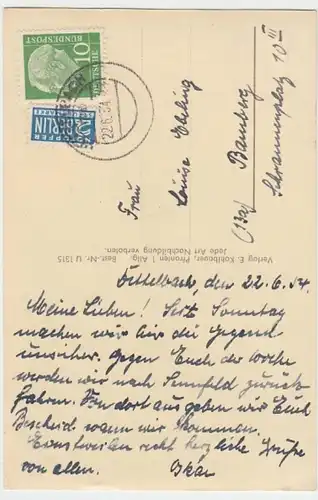 10
DEUTSCHE
BUNDESPOST
NOTOPFER
2 BERLIN
STEUERMARKE
22.6.54
Frau
Louise Ebeling
(13a) Bamberg
Schrannenplatz 10 III
Verlag E. Kohlbauer, Pfronten 1 Allg. Best.-Nr. U 1315
Jede Art Nachbildung verboten.
Dettelbach, den 22.6.54.
Meine Lieben! Seit Sonntag
machen wir hier die Gegend
unsicher. Gegen Ende der Woche
werden wir nach Sennfeld zurück-
fahren. Von dort aus geben wir Euch
Bescheid wann wir kommen.
Einstweilen recht herzliche Grüße
von allen.